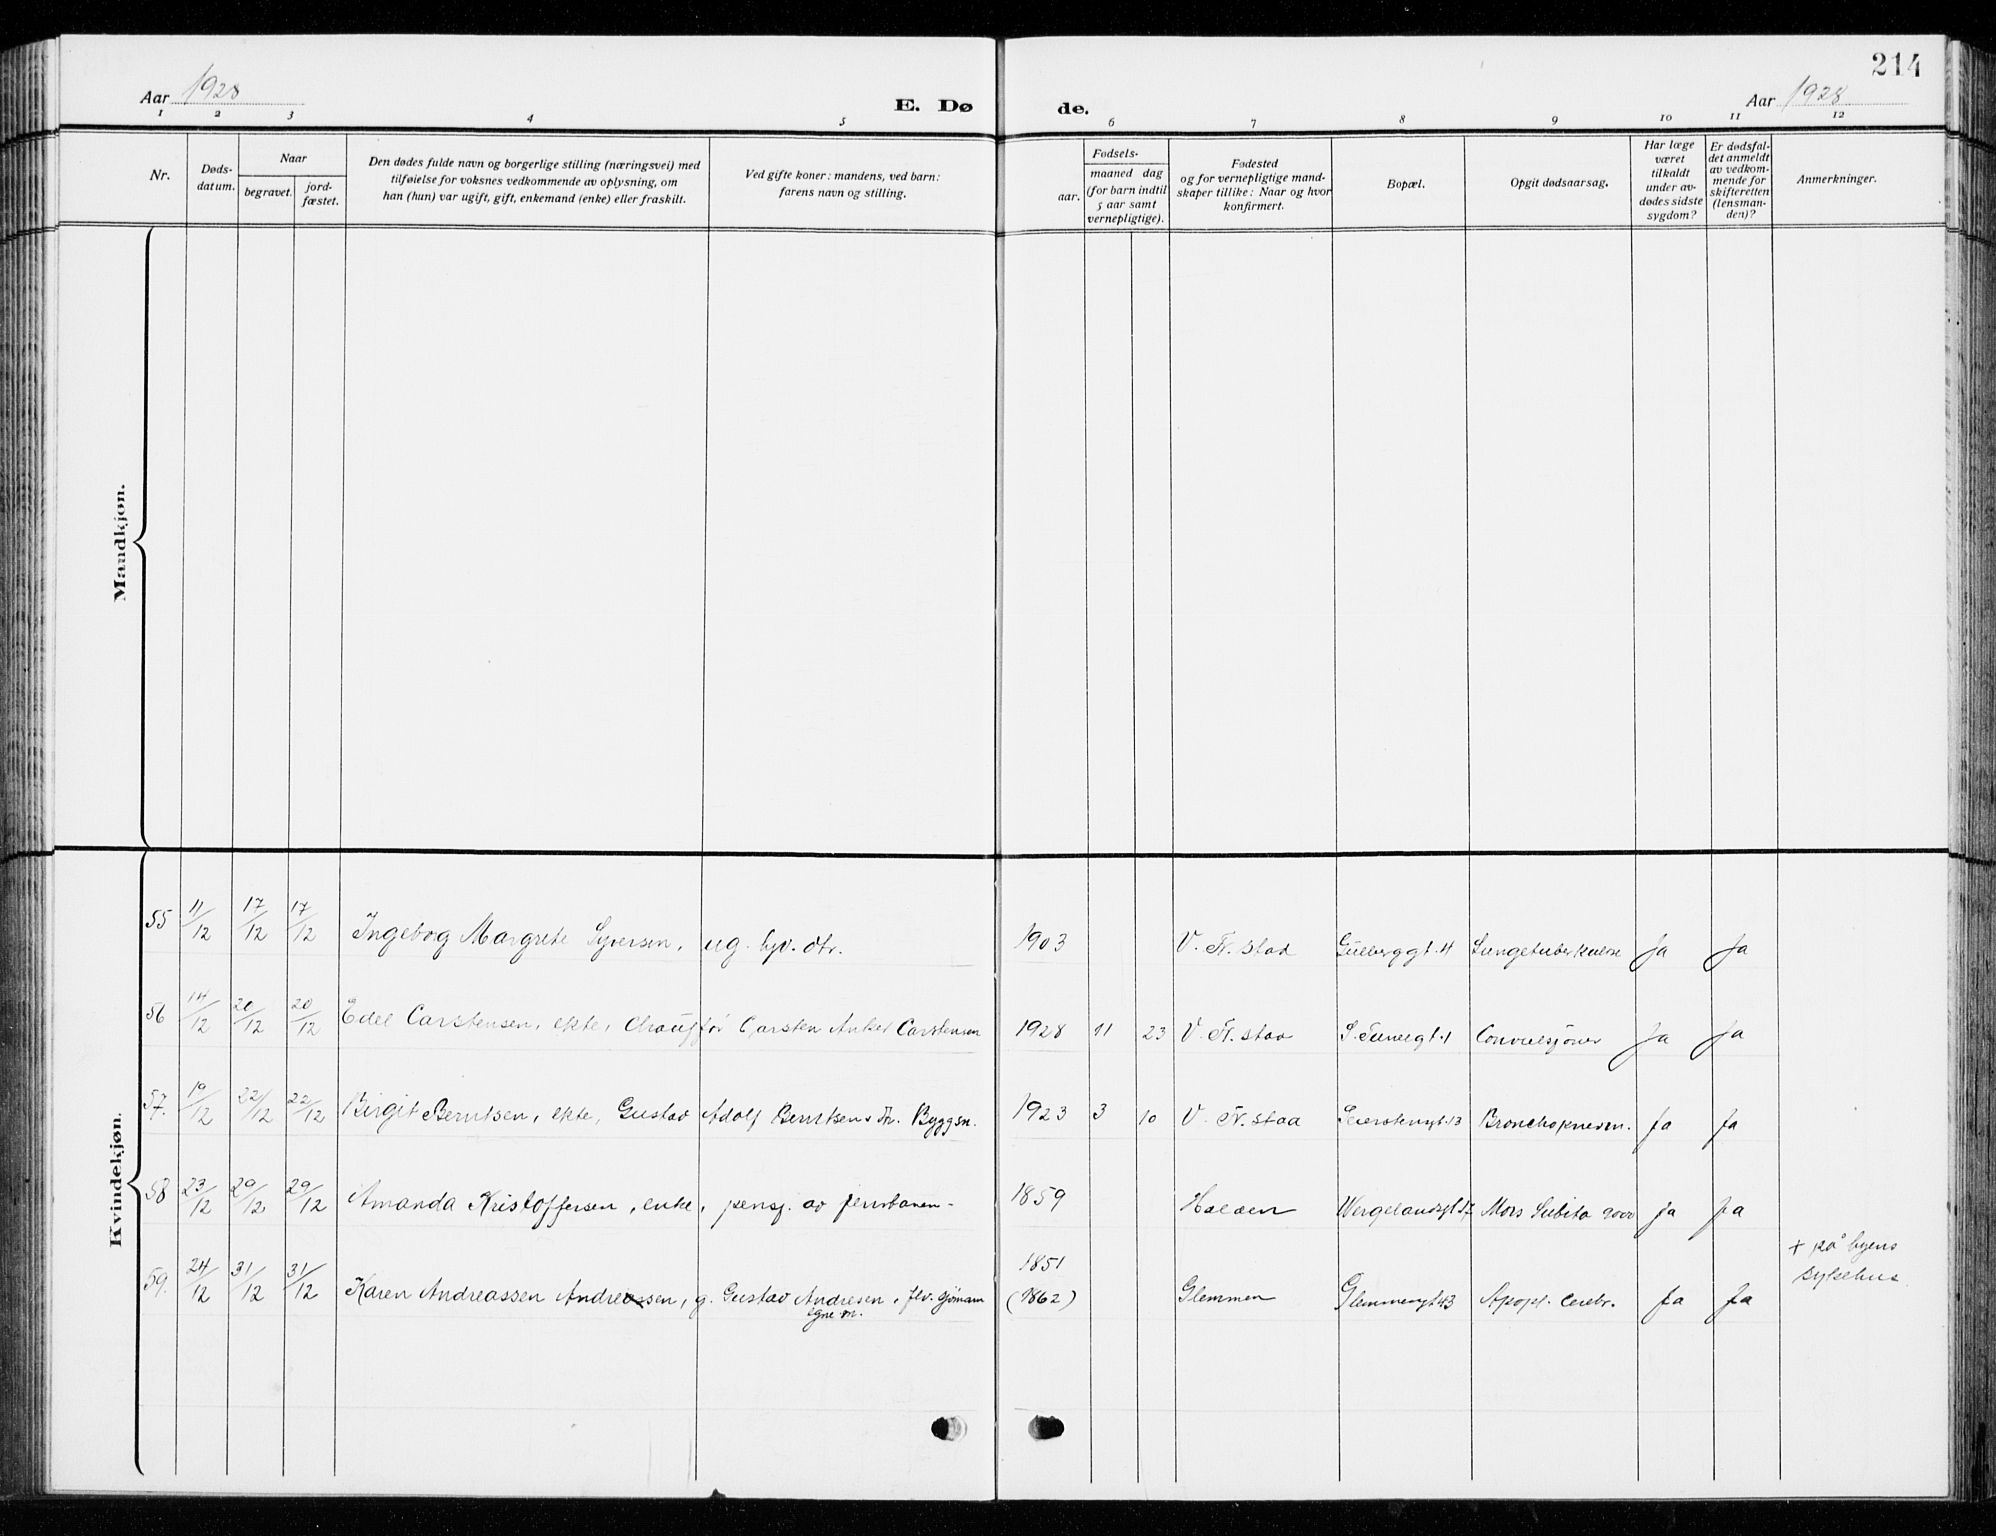 214
Aar 1928
E. Dø
de.
Aar 1928
1 2 3 4 5 6 7 8 9 10 11 12
Nr.
Døds-
datum.
Naar
begravet.
jord-
fæstet.
Den dødes fulde navn og borgerlige stilling (næringsvei) med
tilføielse for voksnes vedkommende av oplysning, om
han (hun) var ugift, gift, enkemand (enke) eller fraskilt.
Ved gifte koner: mandens, ved barn:
farens navn og stilling.
Fødsels-
aar.
maaned dag
(for barn indtil
5 aar samt
vernepligtige).
Fødested
og for vernepligtige mand-
skaper tillike: Naar og hvor
konfirmert.
Bopæl.
Opgit dødsaarsag.
Har læge
været
tilkaldt
under av-
dødes sidste
sygdom?
Er dødsfal-
det anmeldt
av vedkom-
mende for
skifteretten
(lensman-
den)?
Anmerkninger.
Mandkjøn.
Kvindekjøn.
55 11/12 17/12 17/12 Ingeborg Margrete Syversen, ug. hjv. dtr. 1903 V. Fr.stad Gülberggt. 4 Lungetuberkulose Ja Ja
56 14/12 20/12 20/12 Edel Carstensen, ekte, Chauffør Carsten Anker Carstensen 1928 11 23 V. Fr.stad Convulsjoner Ja Ja
57. 19/12 22/12 22/12 Birgit Berntsen, ekte, Gustav Adolf Berntsen Byggsn. 1923 3 10 V. Fr.stad Bronchopneum. Ja Ja
58 23/12 29/12 29/12 Amanda Kristoffersen, enke, pensj. av jernbanen - 1859 Halden Wergelandsgt 17 Mors Subita Ja Ja
+ på byens
sykehus.
59. 24/12 31/12 31/12 Karen Andreassen Andreassen, g. Gustav Andresen, flv. sjömann 1851
(1862) Glemmen Glemmengt 43 Apopl. Cerebr. Ja Ja